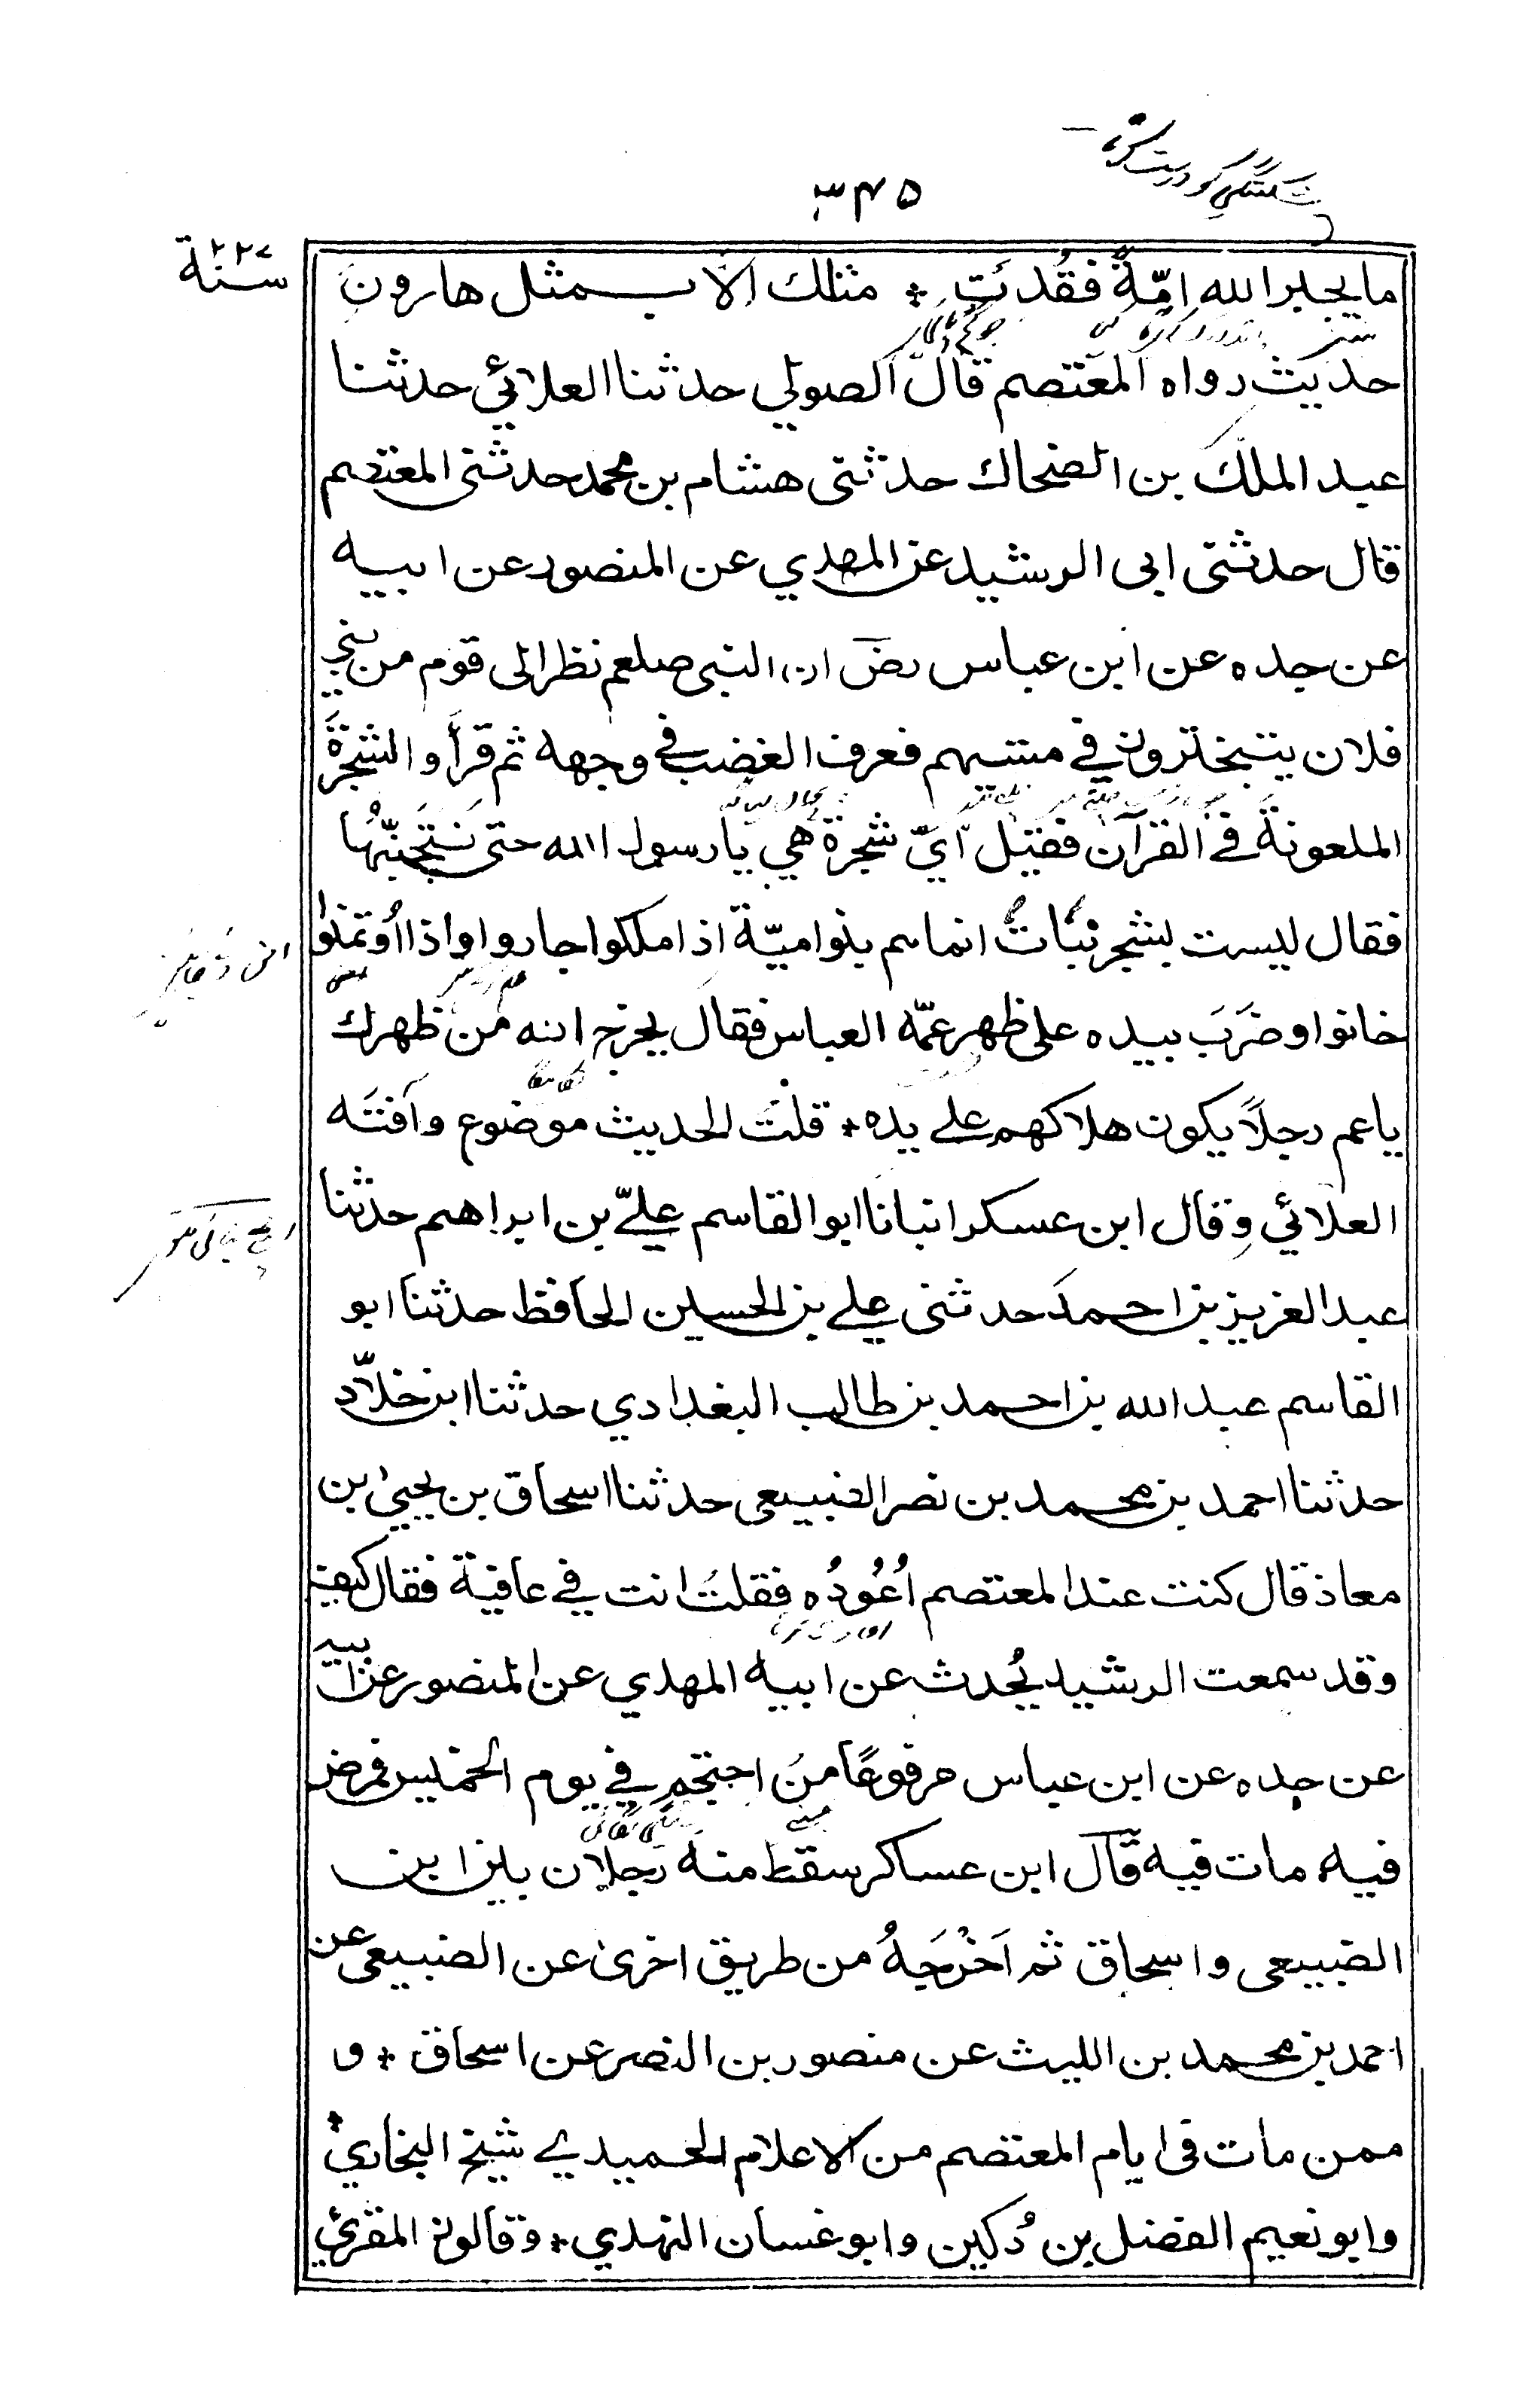 ٣٤٥
سنة ٢٢٧
ما يجبر الله امّةً فقُدتْ * مثلك الا بمثل هارون
حديث رواه المعتصم قال الصولي حدثنا العلائي حدثنا
عبد الملك بن الضحاك حدثنى هشام بن محمد حدثنى المعتصم
قال حدثنى ابى الرشيد عن المهدي عن المنصور عن ابيه
عن جده عن ابن عباس رض ان النبى صلعم نظر الى قوم من بني
فلان يتبخترون في مشيهم فعرف الغضب في وجهه ثم قرأ والشجرةَ
الملعونةَ في القرآن فقيل ايّ شجرة هي يا رسول الله حتى نَجتَنِبَها
فقال ليست بشجر نباتٌ انما هم بنو اميّة اذا ملكوا جاروا واذا أُوتمنوا
خانوا وضرَبَ بيده على ظهر عمّه العباس فقال يخرج الله من ظهرك
يا عم رجلاً يكون هلاكهم على يده * قلت الحديث موضوع وآفته
العلائي وقال ابن عسكر انبانا ابو القاسم عليّ بن ابراهيم حدثنا
عبد العزيز بن احمد حدثنى علي بن الحسين الحافظ حدثنا ابو
القاسم عبد الله بن احمد بن طالب البغدادي حدثنا ابن خلاّد
حدثنا احمد بن محمد بن نصر الضبيعى حدثنا اسحاق بن يحيىٰ بن
معاذ قال كنت عند المعتصم اُعُودُه فقلت انت في عافية فقال كيف
وقد سمعت الرشيد يُحدث عن ابيه المهدي عن المنصور عن ابيه
عن جده عن ابن عباس مرفوعًا من احتجم في يوم الخميس فمرض
فيه مات فيه قال ابن عساكر سقط منه رجلان بين ابن
الضبيعى واسحاق ثم اَخْرَجَهُ من طريق اخرىٰ عن الضبيعى عن
احمد بن محمد بن الليث عن منصور بن النضر عن اسحاق * و
ممن مات فى ايام المعتصم من الاعلام الحميدي شيخ البخاري *
وابو نعيم الفضل بن دُكين وابو غسان النهدي * وقالون المقرئ